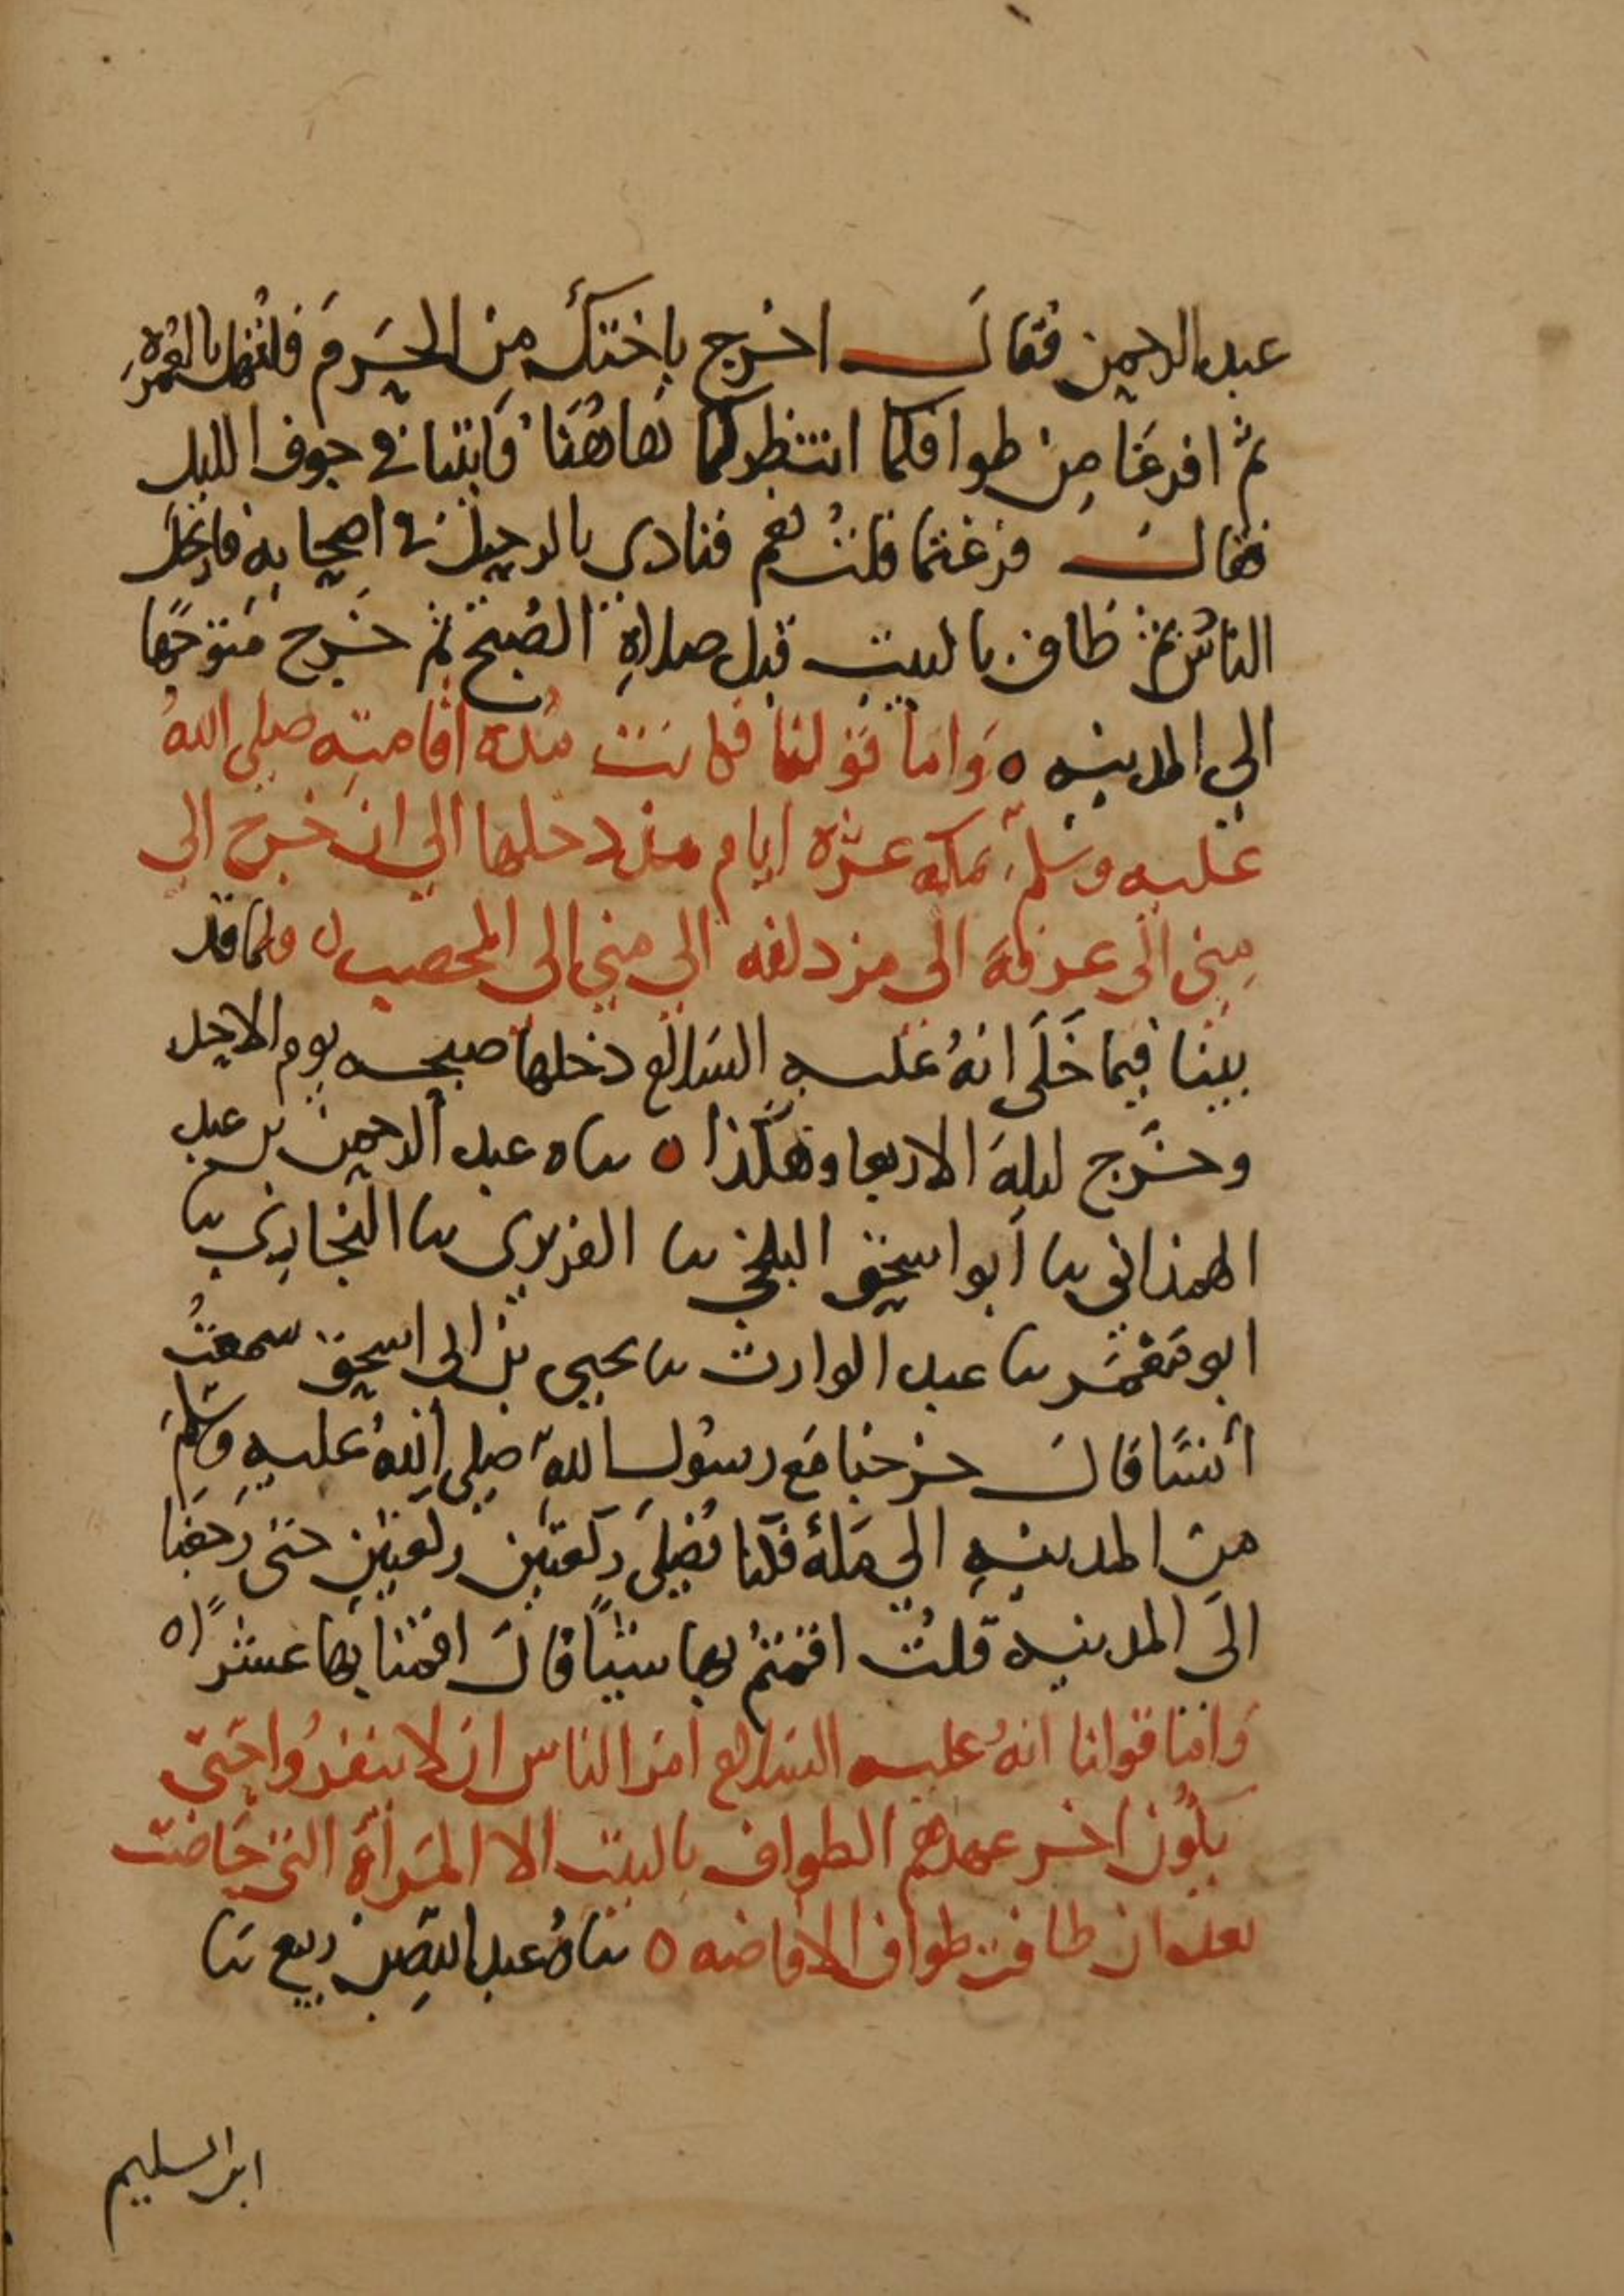 عبد الرحمن فقال اخرج باختك من الحرم فلتهل بالعمرة
ثم افرغا من طوافكما انتظركما هاهنا فاتينا في جوف الليل
فقال فرغتما قلت نعم فنادي بالرحيل في اصحابه فارتحل
الناس ثم طاف بالبيت قبل صلاة الصبح ثم خرج متوجها
الي المدينه ٥ واما قولنا فكانت مدة اقامته صلى الله
عليه وسلم بمكه عشرة ايام منذ دخلها الي ان خرج الى
منى الى عرفة الى مزدلفه الي مني الى المحصب ٥ ولما قد
بينا فيما خلى انه عليه السلام دخلها صبحه يوم الاحد
وخرج ليلة الاربعا وهكذا ٥ ساه عبد الرحمن بن عبد
الهمذاني سا ابو اسحق البلخي سا الفربري سا البخاري سا
ابو معمر سا عبد الوارث سا يحيى بن ابى اسحق سمعت
أنسا قال خرجنا مع رسول الله صلى الله عليه وسلم
من المدينه الي مكة فكنا نصلى ركعتين ركعتين حتى رجعنا
الى المدينه قلت اقمتم بها شيئا قال اقمنا بها عشرا ٥
واما قولنا انه عليه السلام امر الناس ان لا ينفروا حتى
يكون اخر عهدهم الطواف بالبيت الا المرأة التي حاضت
بعد ان طافت طواف الافاضه ٥ ساه عبد الله بن ربيع سا
ابن السليم